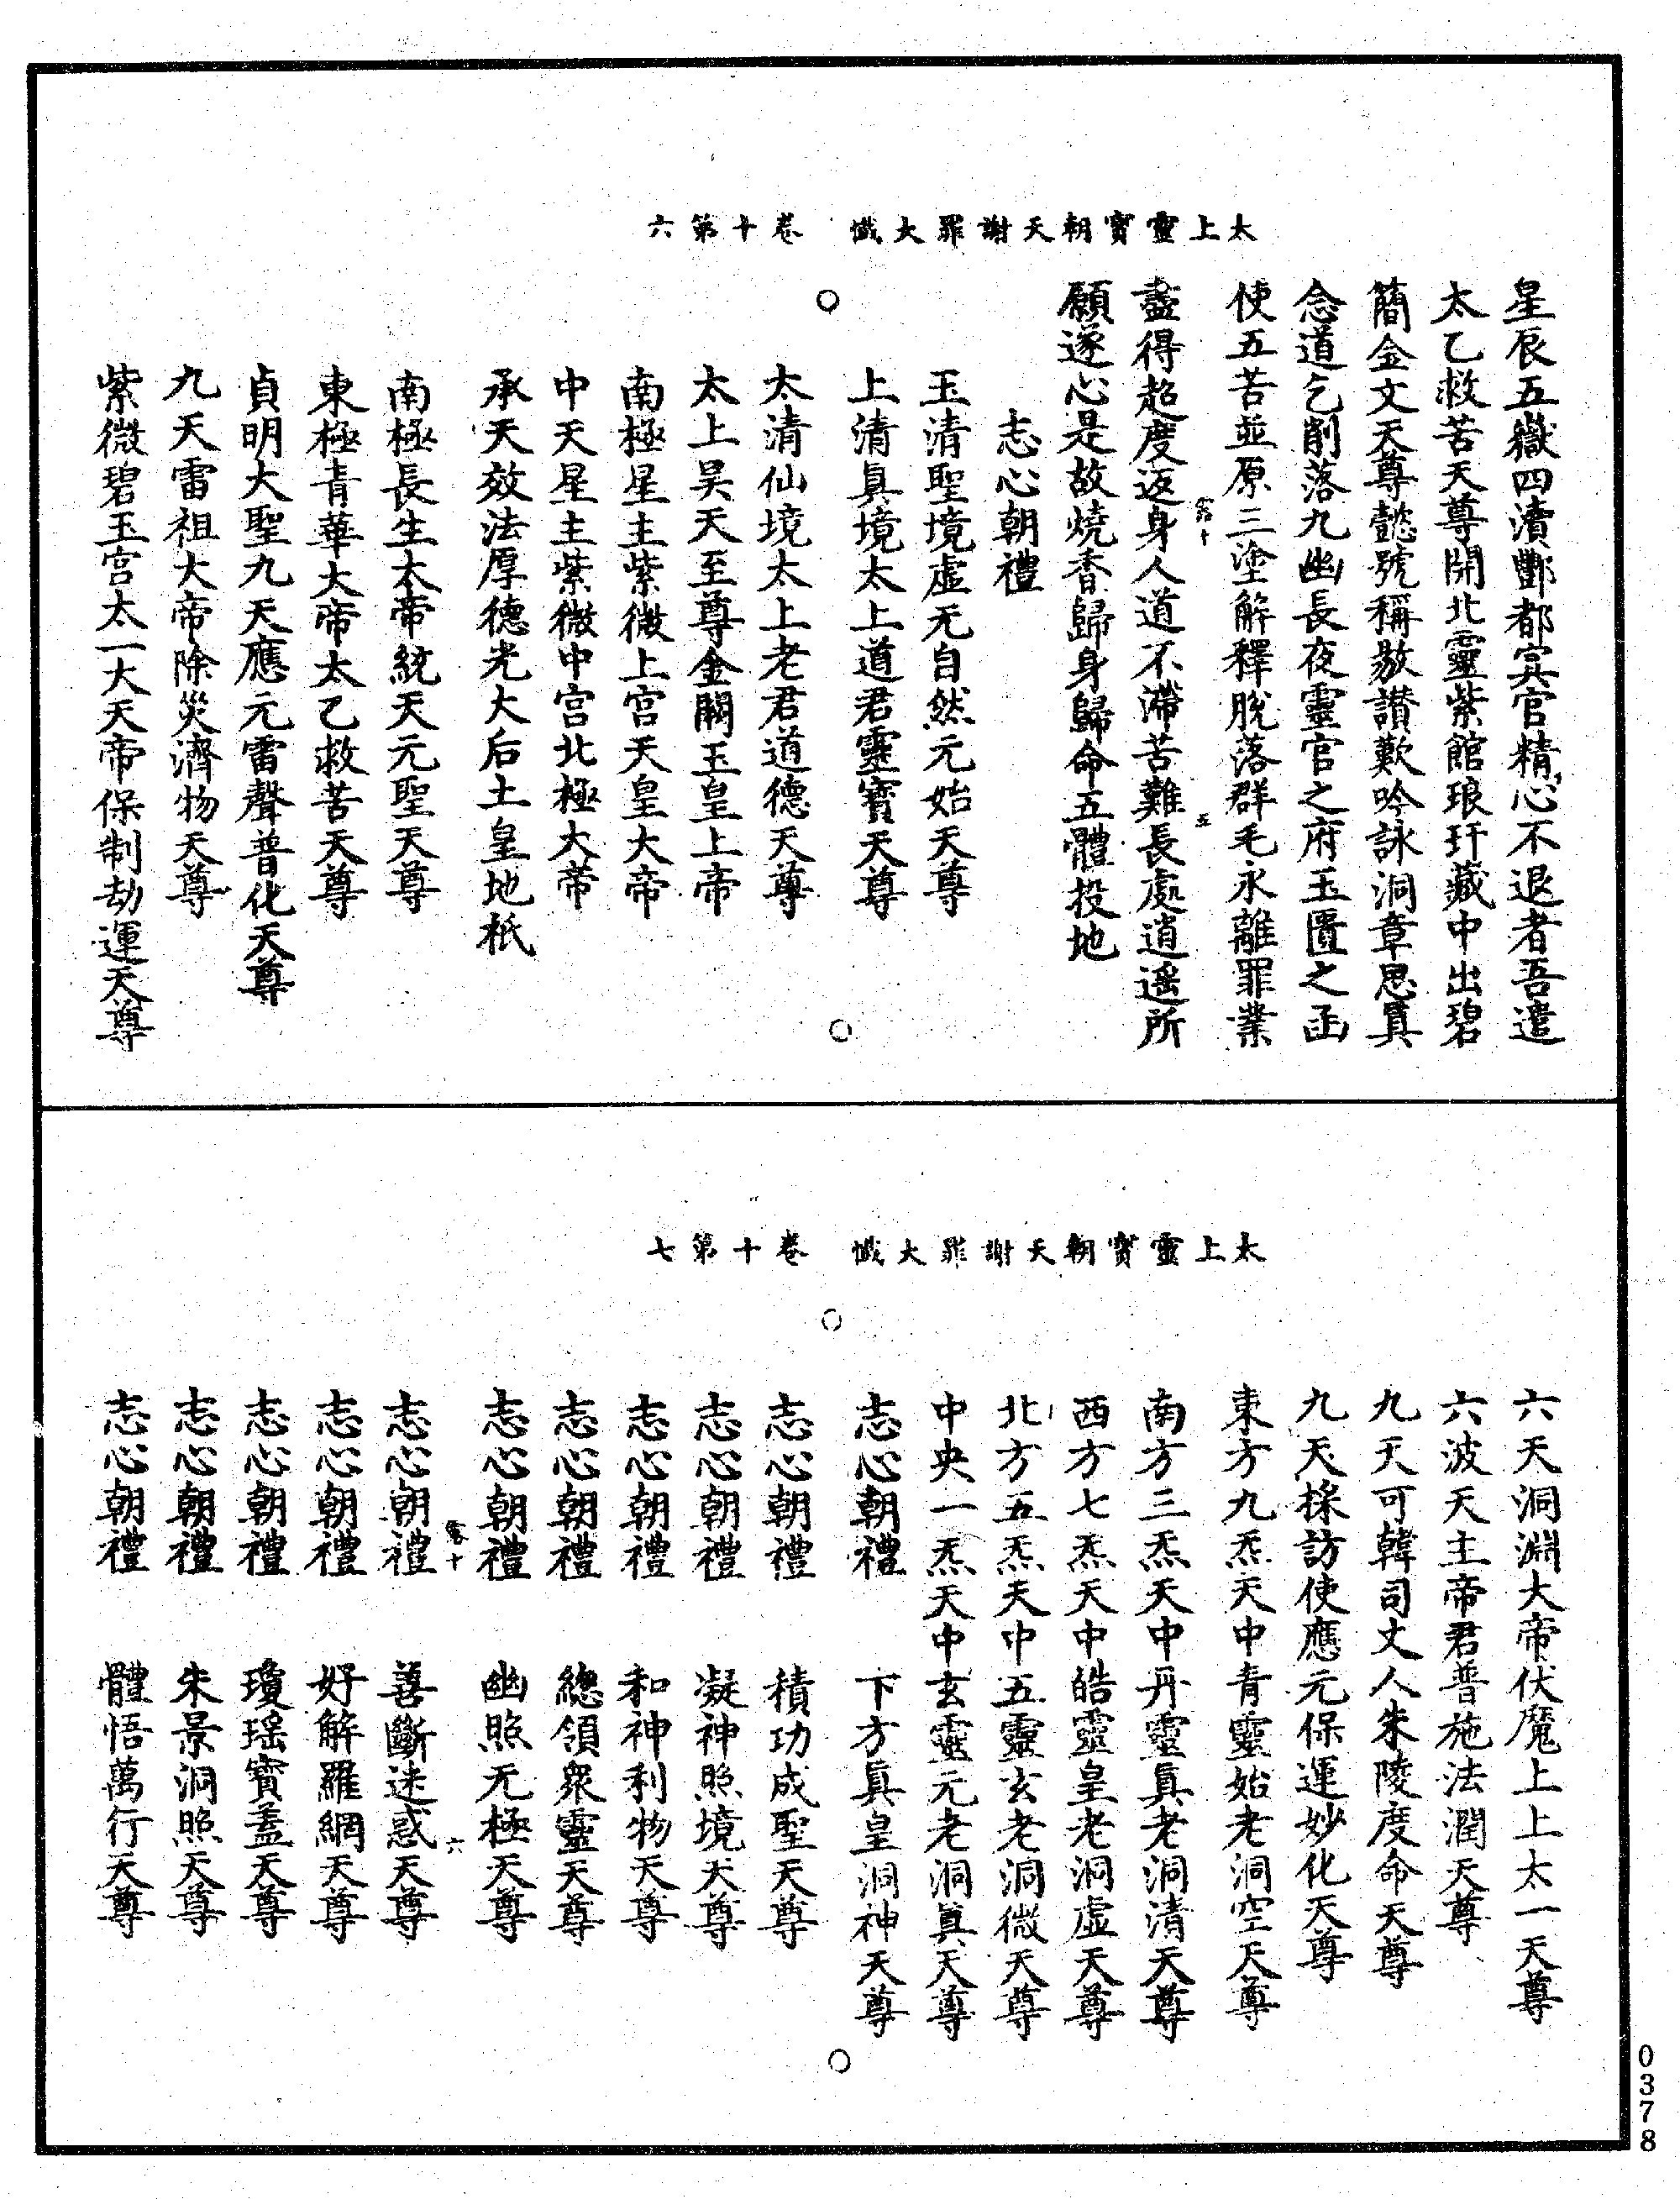 太上靈寶朝天謝罪大懺　卷十第六
星辰五嶽四瀆酆都冥官精心不退者吾遣
太乙救苦天尊開北靈紫館琅玕藏中出碧
簡金文天尊懿號稱敭讃歎吟詠洞章思真
念道乞削落九幽長夜靈官之府玉匱之函
使五苦並原三塗解釋脫落群毛永離罪業
盡得超度返身人道不滯苦難長處逍遥所
願遂心是故燒香歸身歸命五體投地
志心朝禮
玉清聖境虛无自然元始天尊
上清真境太上道君靈寶天尊
太清仙境太上老君道德天尊
太上昊天至尊金闕玉皇上帝
南極星主紫微上宮天皇大帝
中天星主紫微中宮北極大帝
承天效法厚德光大后土皇地祇
南極長生大帝統天元聖天尊
東極青華大帝太乙救苦天尊
貞明大聖九天應元雷聲普化天尊
九天雷祖大帝除災濟物天尊
紫微碧玉宮太一大天帝保制劫運天尊
太上靈寶朝天謝罪大懺　卷十第七
六天洞淵大帝伏魔上上太一天尊
六波天主帝君普施法潤天尊
九天可韓司丈人朱陵度命天尊
九天採訪使應元保運妙化天尊
東方九炁天中青靈始老洞空天尊
南方三炁天中丹靈真老洞清天尊
西方七炁天中皓靈皇老洞虛天尊
北方五炁天中五靈玄老洞微天尊
中央一炁天中玄靈元老洞真天尊
志心朝禮　下方真皇洞神天尊
志心朝禮　積功成聖天尊
志心朝禮　凝神照境天尊
志心朝禮　和神利物天尊
志心朝禮　總領眾靈天尊
志心朝禮　幽照无極天尊
志心朝禮　善斷迷惑天尊
志心朝禮　好解羅網天尊
志心朝禮　瓊瑶寶蓋天尊
志心朝禮　朱景洞照天尊
志心朝禮　體悟萬行天尊
0378